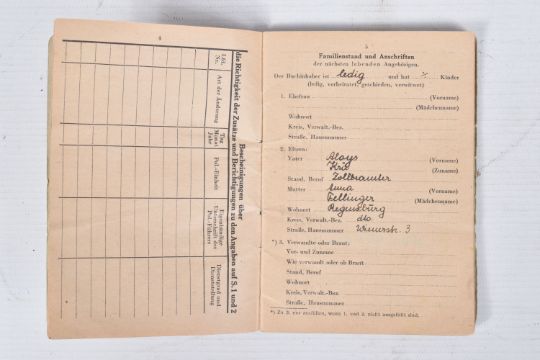 4
Bescheinigungen über
die Richtigkeit der Zusätze und Berichtigungen zu den Angaben auf S. 1 und 2
Lfd.
Nr.
Art der Änderung
Tag
Monat
Jahr
Pol.-Einheit
Eigenhändige
Unterschrift des
Pol.-Führers
Dienstgrad und
Dienststellung
5
Familienstand und Anschriften
der nächsten lebenden Angehörigen.
Der Buchinhaber ist ledig und hat Kinder
(ledig, verheiratet, geschieden, verwitwet)
1. Ehefrau (Vorname)
(Mädchenname)
Wohnort
Kreis, Verwalt.-Bez.
Straße, Hausnummer
2. Eltern:
Vater Aloys (Vorname)
(Zuname)
Stand, Beruf Zollbeamter
Mutter Anna (Vorname)
Fellinger (Mädchenname)
Wohnort Regensburg
Kreis, Verwalt.-Bez. dto
Straße, Hausnummer 3
*) 3. Verwandte oder Braut:
Vor- und Zuname
Wie verwandt oder ob Braut
Stand, Beruf
Wohnort
Kreis, Verwalt.-Bez.
Straße, Hausnummer
*) Zu 3. nur ausfüllen, wenn 1. und 2. nicht ausgefüllt sind.